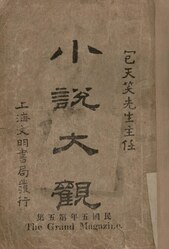 包天笑先生主任
小說大觀
上海文明書局發行
民國五年第五集
The Grand Magazine.